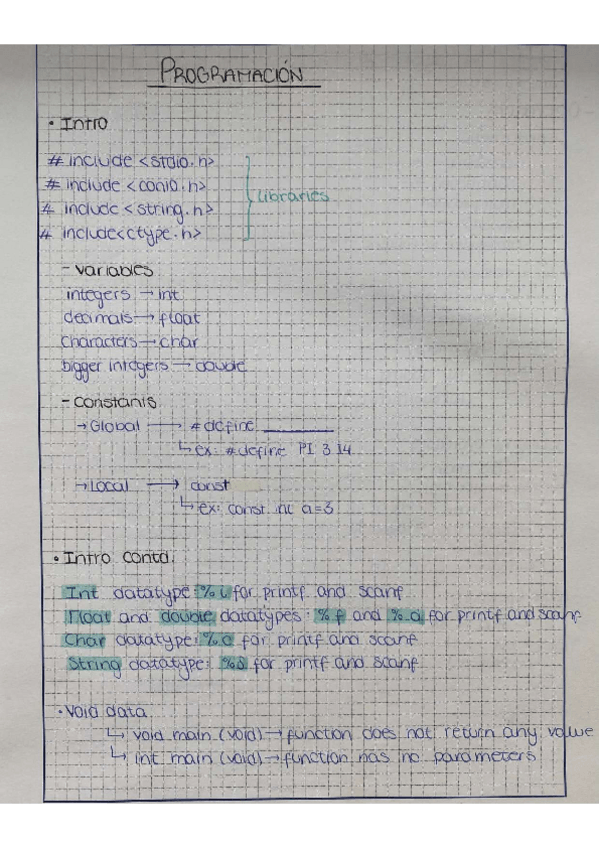 PROGRAMACIÓN
• Intro
# include <stdio.h>
# include <conio.h>
# include <string.h>
# include<ctype.h>
Libraries
- variables
integers → int
decimals → float
characters → char
bigger integers → double
- constants
→ Global → # define ________
↳ ex: #define PI 3.14
→ Local → const
↳ ex: const int a=3
• Intro contd.
Int datatype: %i for printf and scanf
Float and double datatypes: %f and %g for printf and scanf
Char datatype: %c for printf and scanf
String datatype: %s for printf and scanf
• Void data
↳ void main (void) → function does not return any value
↳ int main (void) → function has no parameters